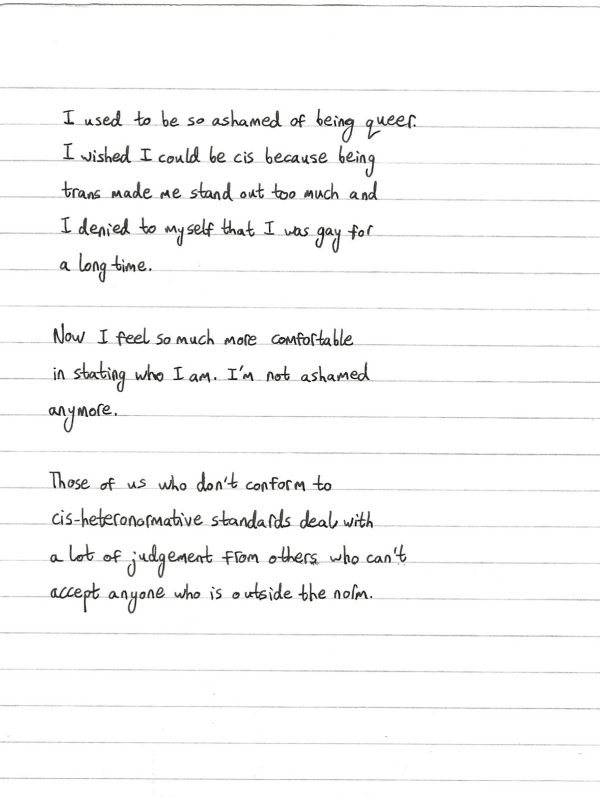 I used to be so ashamed of being queer.
I wished I could be cis because being
trans made me stand out too much and
I denied to myself that I was gay for
a long time.
Now I feel so much more comfortable
in stating who I am. I'm not ashamed
anymore.
Those of us who don't conform to
cis-heteronormative standards deal with
a lot of judgement from others who can't
accept anyone who is outside the norm.